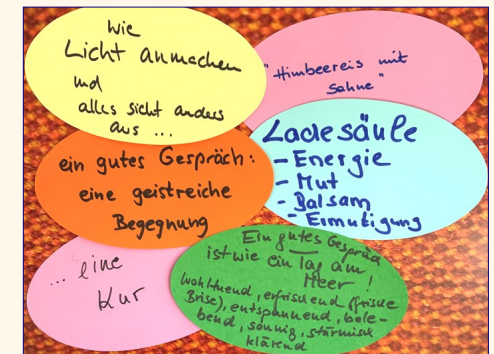 Wie
Licht anmachen
und
alles sieht anders
aus ...
"Himbeereis mit
Sahne"
ein gutes Gespräch:
eine geistreiche
Begegnung
Ladesäule
- Energie
- Mut
- Balsam
- Ermutigung
... eine
Kur
Ein gutes Gespräch
ist wie ein Tag am
Meer !
wohltuend, erfrischend (frische
Brise), entspannend, bele-
bend, sonnig, stürmisch
klärend